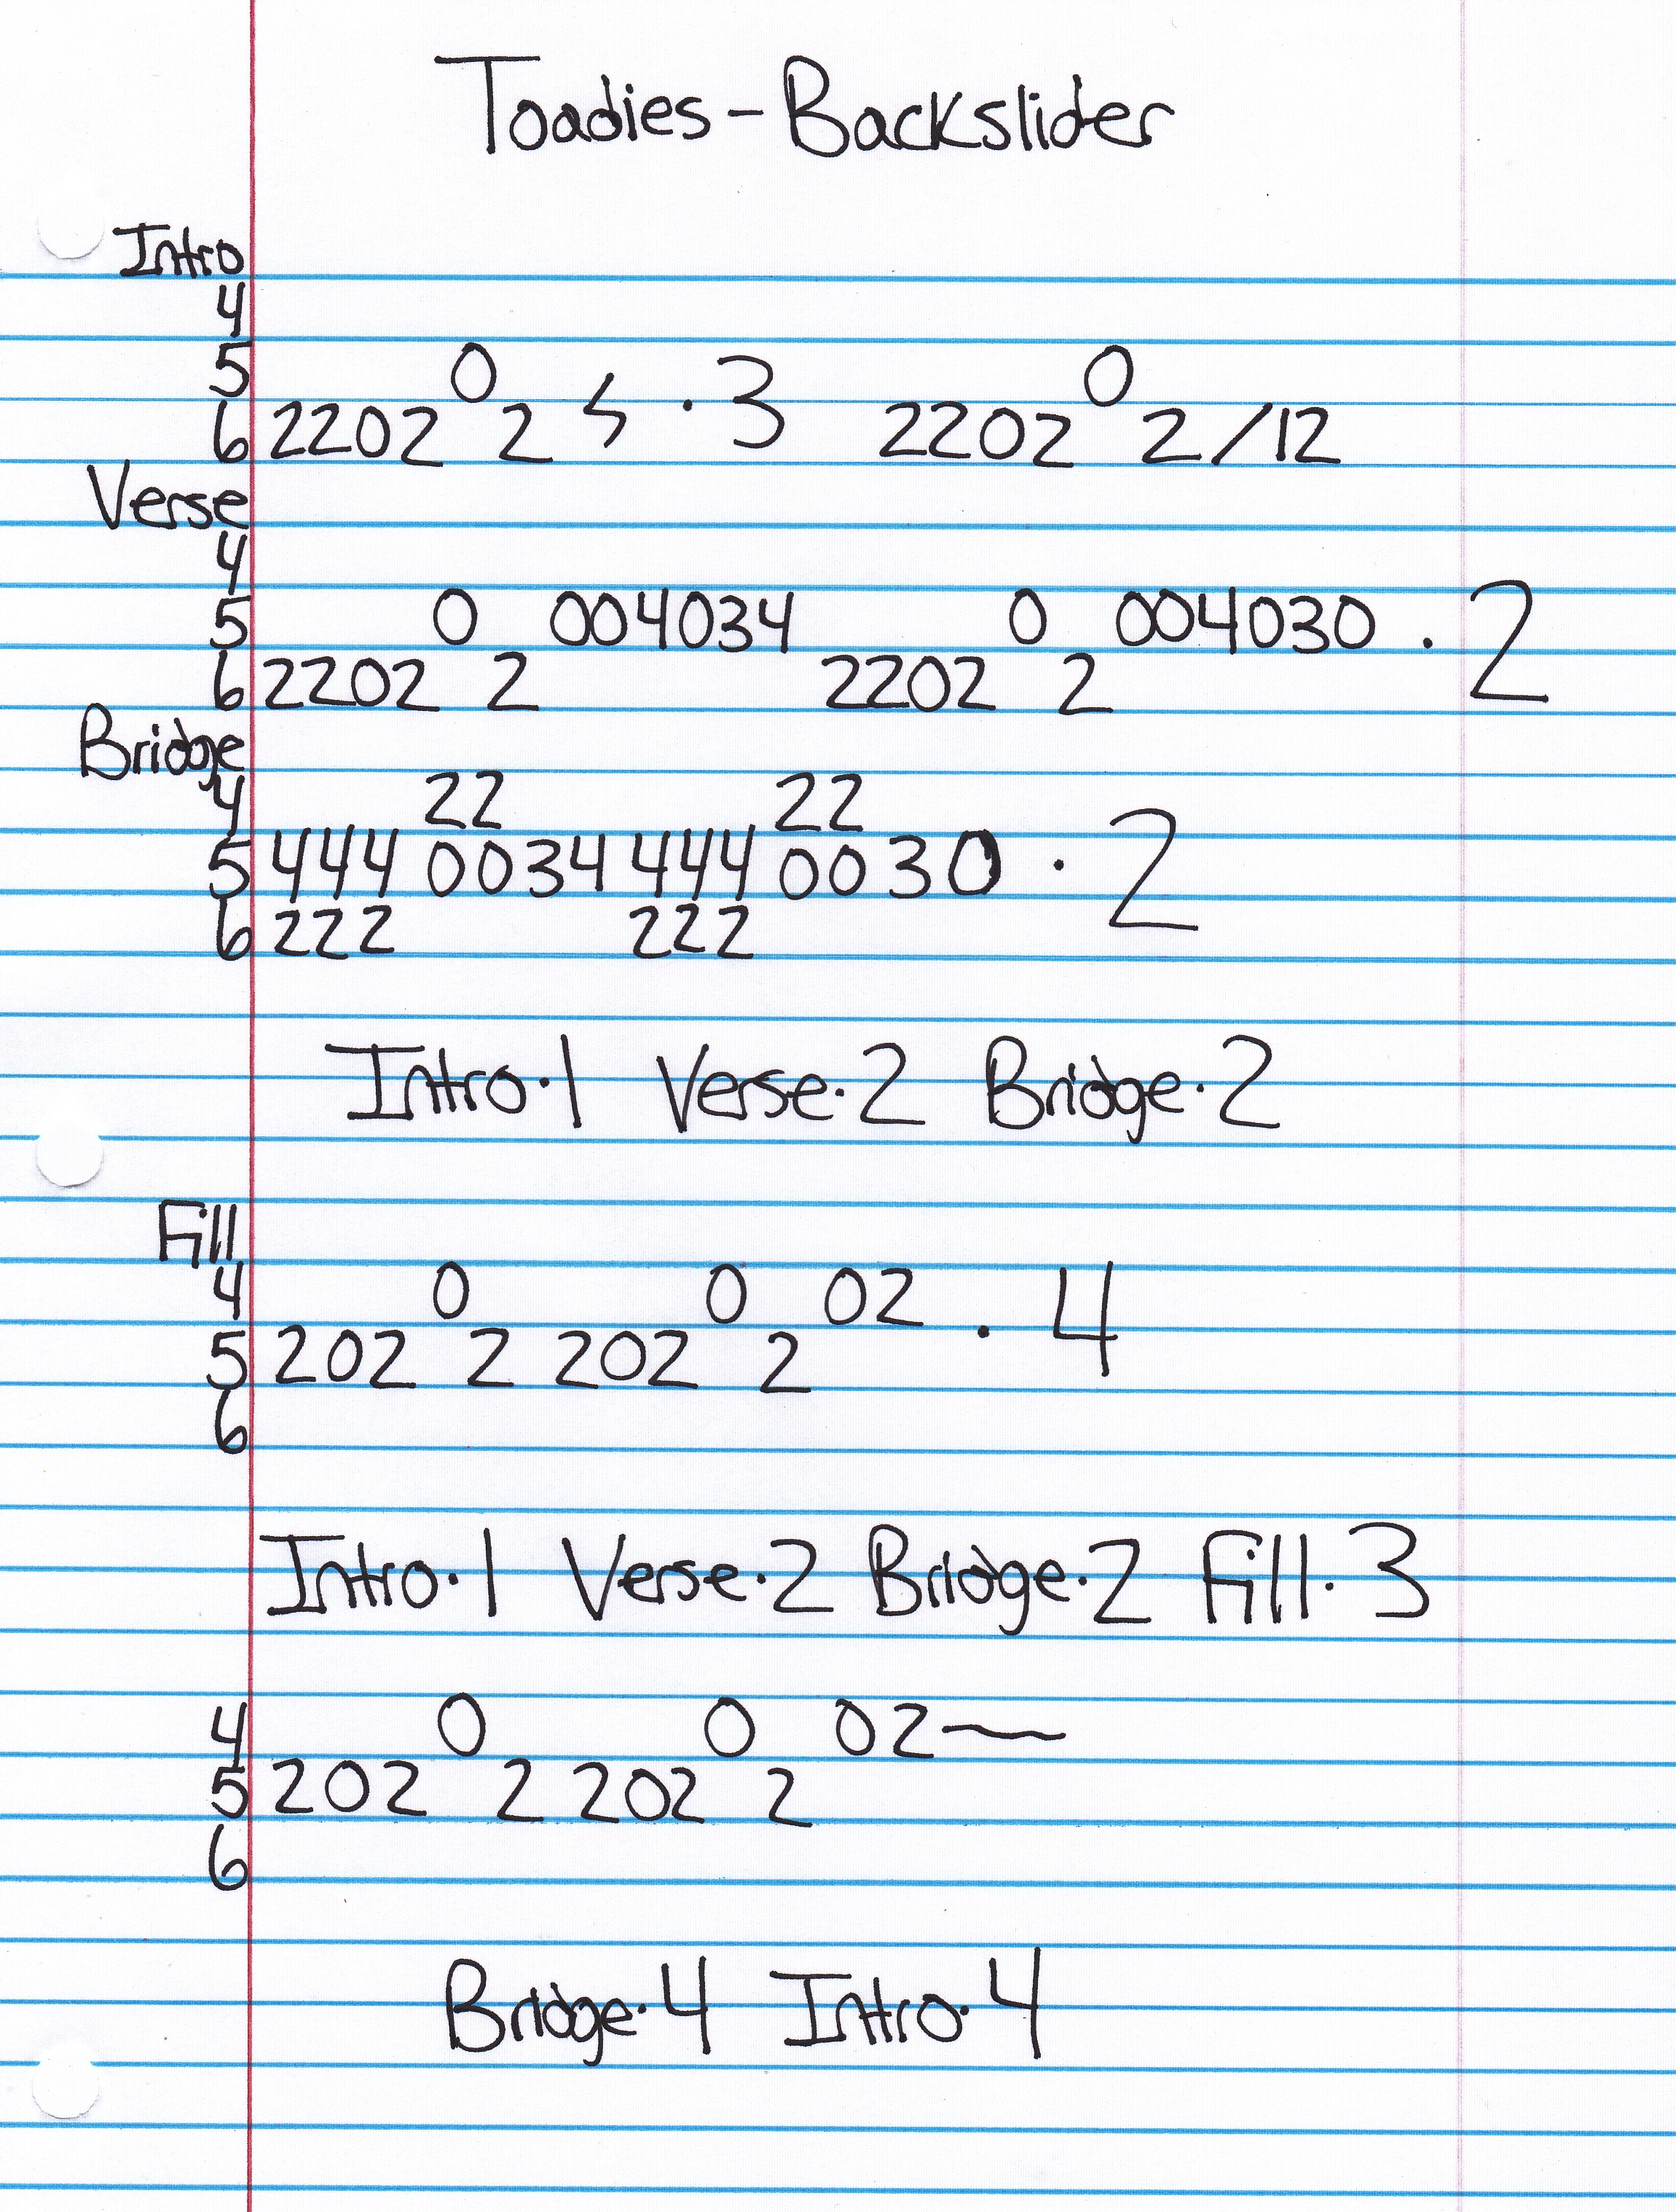 Toadies - Backslider
Intro
4
5 0 0
6 2202 2 ϟ · 3 2202 2 /12
Verse
4
5 0 004034 0 004030 · 2
6 2202 2 2202 2
Bridge
4 22 22
5 444 0034 444 0030 · 2
6 222 222
Intro·1 Verse·2 Bridge·2
Fill
4 0 0 02 · 4
5 202 2 202 2
6
Intro·1 Verse·2 Bridge·2 Fill·3
4 0 0 02~
5 202 2 202 2
6
Bridge·4 Intro·4